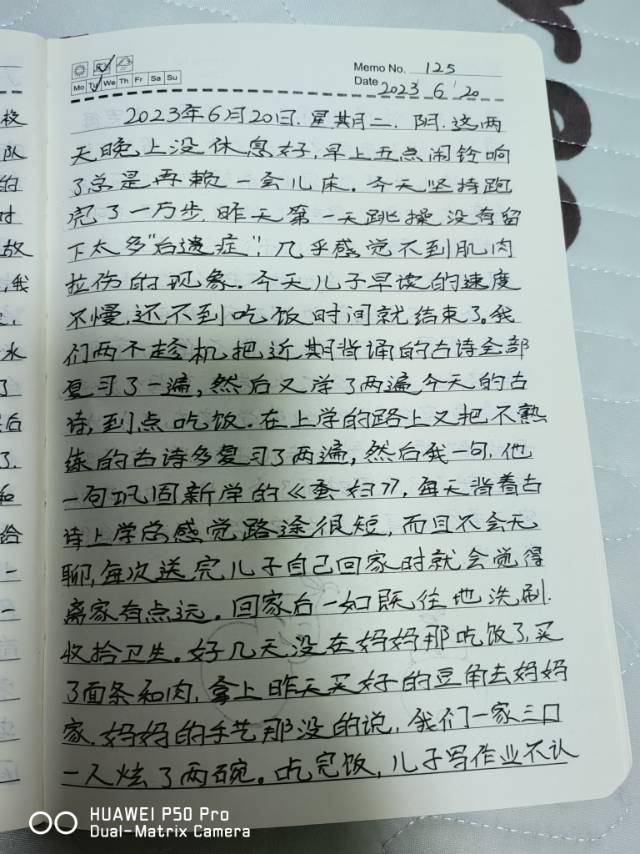 Memo No. 125
Mo Tu We Th Fr Sa Su
Date 2023 6 20
2023年6月20日.星期二.阴.这两
天晚上没休息好,早上五点闹铃响
了总是再赖一会儿床.今天坚持跑
完了一万步.昨天第一天跳操没有留
下太多"后遗症",几乎感觉不到肌肉
拉伤的现象.今天儿子早读的速度
不慢,还不到吃饭时间就结束了。我
们两个趁机把近期背诵的古诗全部
复习了一遍,然后又学了两遍今天的古
诗,到点吃饭.在上学的路上又把不熟
练的古诗多复习了两遍,然后我一句,他
一句巩固新学的《蚕妇》,每天背着古
诗上学总感觉路途很短,而且不会无
聊,每次送完儿子自己回家时就会觉得
离家有点远。回家后一如既往地洗刷.
收拾卫生。好几天没在妈妈那吃饭了,买
了面条和肉,拿上昨天买好的豆角去妈妈
家.妈妈的手艺那没的说,我们一家三口
一人炫了两碗。吃完饭,儿子写作业不认
校
队
的
时
放
,我
水
了
后
了.
和
给
一
一
HUAWEI P50 Pro
Dual-Matrix Camera